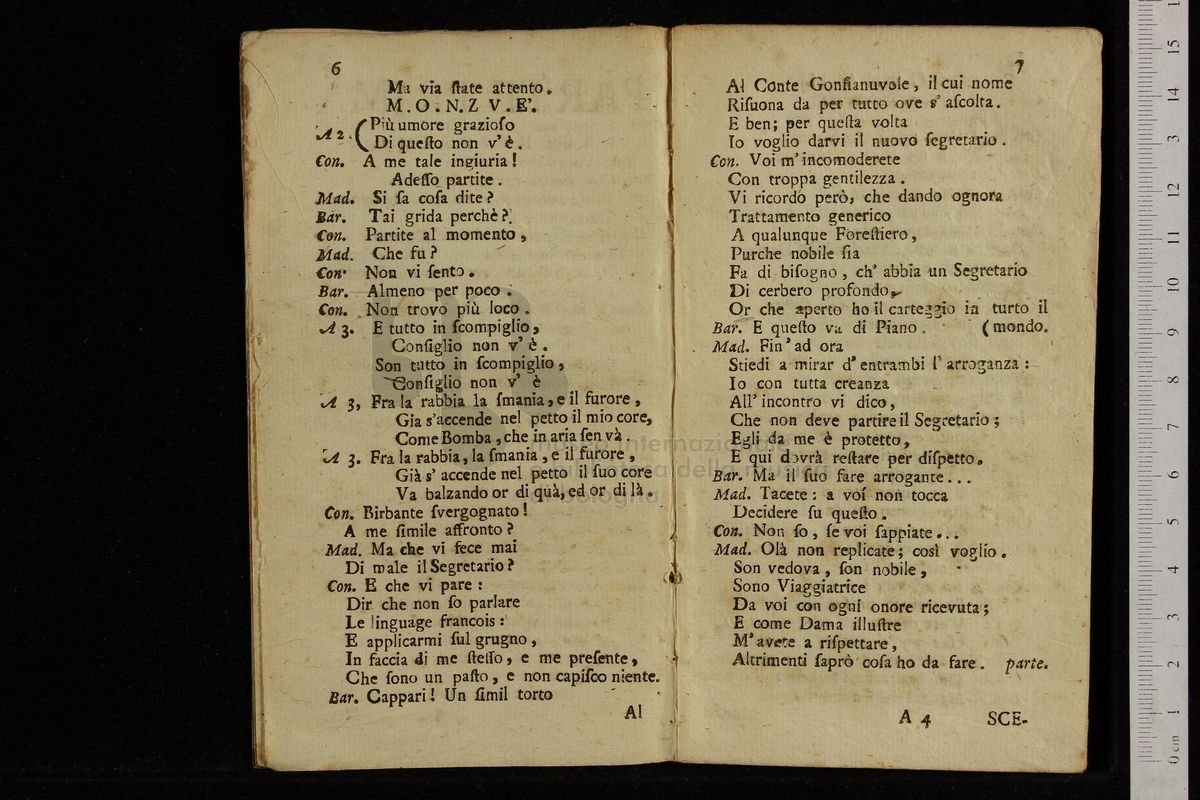 6
Ma via ſtate attento.
M.O.N.Z V.E'.
A 2. (Più umore grazioſo
Di queſto non v' è.
Con. A me tale ingiuria!
Adeſſo partite.
Mad. Si ſa coſa dite?
Bar. Tai grida perchè?
Con. Partite al momento,
Mad. Che fu?
Con. Non vi ſento.
Bar. Almeno per poco.
Con. Non trovo più loco.
A 3. E tutto in ſcompiglio,
Conſiglio non v' è.
Son tutto in ſcompiglio,
Conſiglio non v' è
A 3, Fra la rabbia la ſmania, e il furore,
Gia s'accende nel petto il mio core,
Come Bomba, che in aria ſen và.
A 3. Fra la rabbia, la ſmania, e il furore,
Già s' accende nel petto il ſuo core
Va balzando or di quà, ed or di là.
Con. Birbante ſvergognato!
A me ſimile affronto?
Mad. Ma che vi fece mai
Di male il Segretario?
Con. E che vi pare:
Dir che non ſo parlare
Le linguage francois:
E applicarmi ſul grugno,
In faccia di me ſteſſo, e me preſente,
Che ſono un paſto, e non capiſco niente.
Bar. Cappari! Un ſimil torto
Al
7
Al Conte Gonfianuvole, il cui nome
Riſuona da per tutto ove s' aſcolta.
E ben; per queſta volta
Io voglio darvi il nuovo ſegretario.
Con. Voi m' incomoderete
Con troppa gentilezza.
Vi ricordo però, che dando ognora
Trattamento generico
A qualunque Foreſtiero,
Purche nobile ſia
Fa di biſogno, ch' abbia un Segretario
Di cerbero profondo,
Or che aperto ho il carteggio in turto il
Bar. E queſto va di Piano. (mondo.
Mad. Fin' ad ora
Stiedi a mirar d' entrambi l' arroganza:
Io con tutta creanza
All' incontro vi dico,
Che non deve partire il Segretario;
Egli da me è protetto,
E qui dovrà reſtare per diſpetto.
Bar. Ma il ſuo fare arrogante...
Mad. Tacete: a voi non tocca
Decidere ſu queſto.
Con. Non ſo, ſe voi ſappiate...
Mad. Olà non replicate; così voglio.
Son vedova, ſon nobile,
Sono Viaggiatrice
Da voi con ogni onore ricevuta;
E come Dama illuſtre
M' avete a riſpettare,
Altrimenti ſaprò coſa ho da fare. parte.
A 4 SCE-